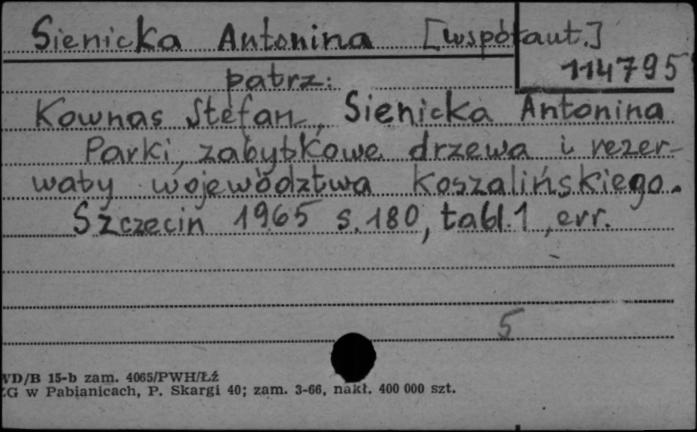 Sienicka Antonina [współaut.]
114795
patrz:
Kownas Stefan, Sienicka Antonina
Parki, zabytkowe drzewa i rezer-
waty województwa koszalińskiego.
Szczecin 1965 s. 180, tabl. 1, err.
5
WD/B 15-b zam. 4065/PWH/Łź
ZG w Pabianicach, P. Skargi 40; zam. 3-66, nakł. 400 000 szt.